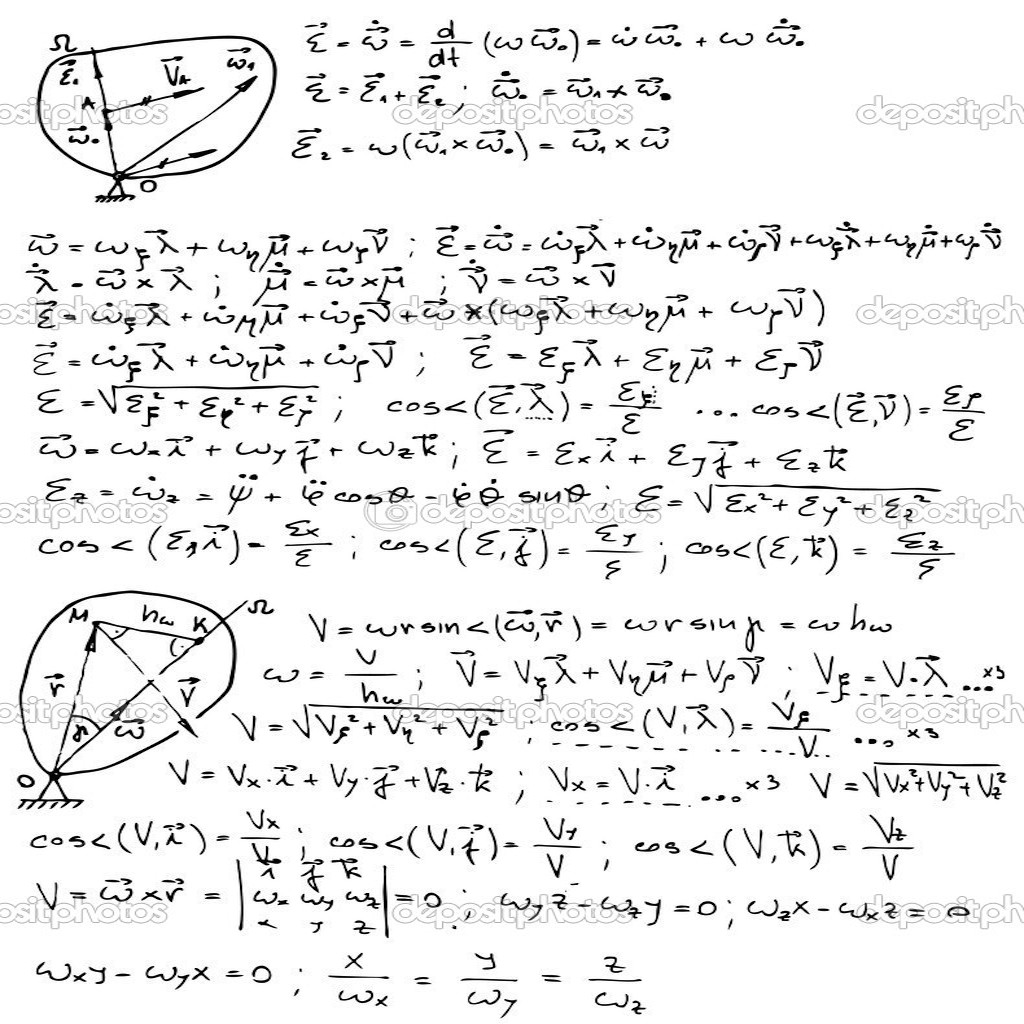 Ω
ε⃗₁ V⃗_A ω⃗₁
A
ω⃗₀
O
ε⃗ = ω⃗̇ = d/dt (ω ω⃗₀) = ω̇ ω⃗₀ + ω ω⃗̇₀
ε⃗ = ε⃗₁ + ε⃗₂ ; ω⃗̇₀ = ω⃗₁ × ω⃗₀
ε⃗₂ = ω(ω⃗₁ × ω⃗₀) = ω⃗₁ × ω⃗
ω⃗ = ω_ξ λ⃗ + ω_η μ⃗ + ω_ζ ν⃗ ; ε⃗ = ω⃗̇ = ω̇_ξ λ⃗ + ω̇_η μ⃗ + ω̇_ζ ν⃗ + ω_ξ λ⃗̇ + ω_η μ⃗̇ + ω_ζ ν⃗̇
λ⃗̇ = ω⃗ × λ⃗ ; μ⃗̇ = ω⃗ × μ⃗ ; ν⃗̇ = ω⃗ × ν⃗
ε⃗ = ω̇_ξ λ⃗ + ω̇_η μ⃗ + ω̇_ζ ν⃗ + ω⃗ × (ω_ξ λ⃗ + ω_η μ⃗ + ω_ζ ν⃗)
ε⃗ = ω̇_ξ λ⃗ + ω̇_η μ⃗ + ω̇_ζ ν⃗ ; ε⃗ = ε_ξ λ⃗ + ε_η μ⃗ + ε_ζ ν⃗
ε = √(ε_ξ² + ε_η² + ε_ζ²) ; cos<(ε⃗,λ⃗) = ε_ξ/ε ... cos<(ε⃗,ν⃗) = ε_ζ/ε
ω⃗ = ω_x i⃗ + ω_y j⃗ + ω_z k⃗ ; ε⃗ = ε_x i⃗ + ε_y j⃗ + ε_z k⃗
ε_z = ω̇_z = ψ̈ + φ̈ cosθ - φ̇ θ̇ sinθ ; ε = √(ε_x² + ε_y² + ε_z²)
cos<(ε,i⃗) = ε_x/ε ; cos<(ε,j⃗) = ε_y/ε ; cos<(ε,k⃗) = ε_z/ε
M h_ω K Ω
r⃗ V⃗
γ ω⃗
O
V = ωr sin<(ω⃗,r⃗) = ωr sin γ = ω h_ω
ω = V/h_ω ; V⃗ = V_ξ λ⃗ + V_η μ⃗ + V_ζ ν⃗ ; V_ξ = V·λ⃗ ... ×3
V = √(V_ξ² + V_η² + V_ζ²) ; cos<(V,λ⃗) = V_ξ/V ... ×3
V = V_x·i⃗ + V_y·j⃗ + V_z·k⃗ ; V_x = V·i⃗ ... ×3 V = √(V_x² + V_y² + V_z²)
cos<(V,i⃗) = V_x/V ; cos<(V,j⃗) = V_y/V ; cos<(V,k⃗) = V_z/V
V = ω⃗ × r⃗ = | i⃗ j⃗ k⃗ ; ω_x ω_y ω_z ; x y z | = 0 ; ω_y z - ω_z y = 0 ; ω_z x - ω_x z = 0
ω_x y - ω_y x = 0 ; x/ω_x = y/ω_y = z/ω_z
depositphotos